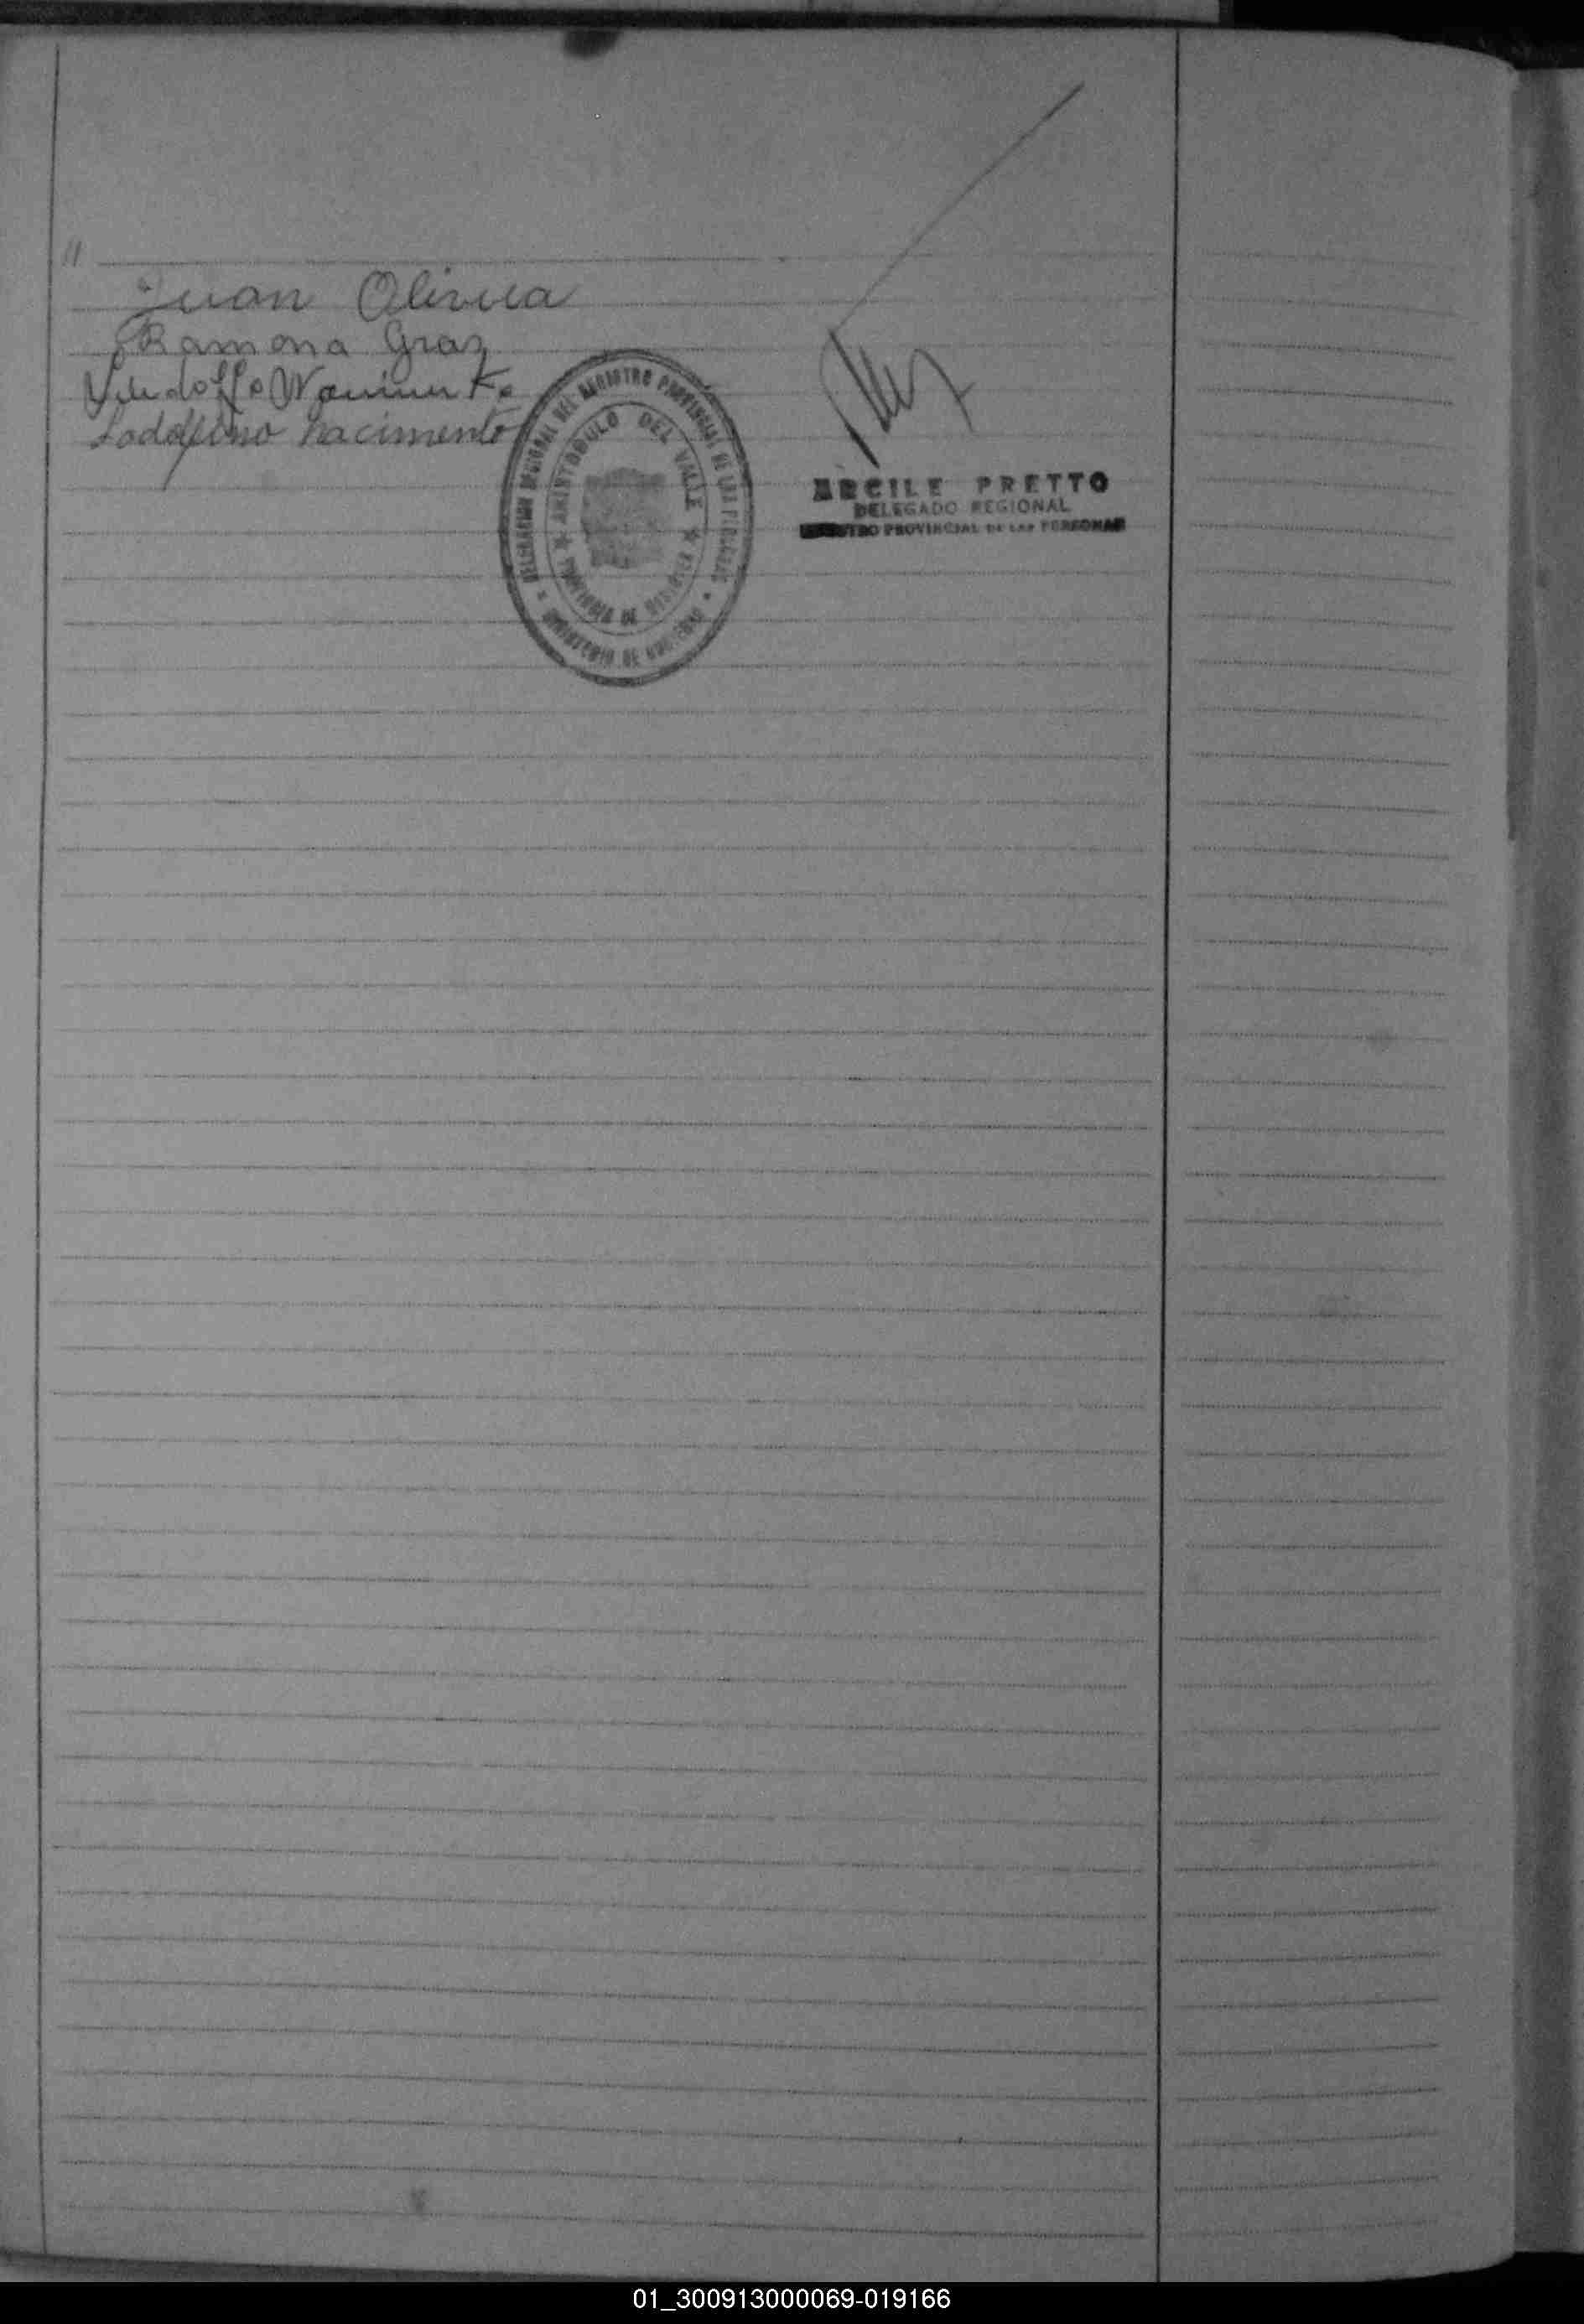 "
Juan Oliveira
Ramona Graz
Lindolfo Nacimento
Lodolfino nacimento
DELEGACION REGIONAL DEL REGISTRO PROVINCIAL DE LAS PERSONAS
MINISTERIO DE GOBIERNO
ARISTOBULO DEL VALLE
PROVINCIA DE MISIONES
ARCILE PRETTO
DELEGADO REGIONAL
REGISTRO PROVINCIAL DE LAS PERSONAS
01_300913000069-019166